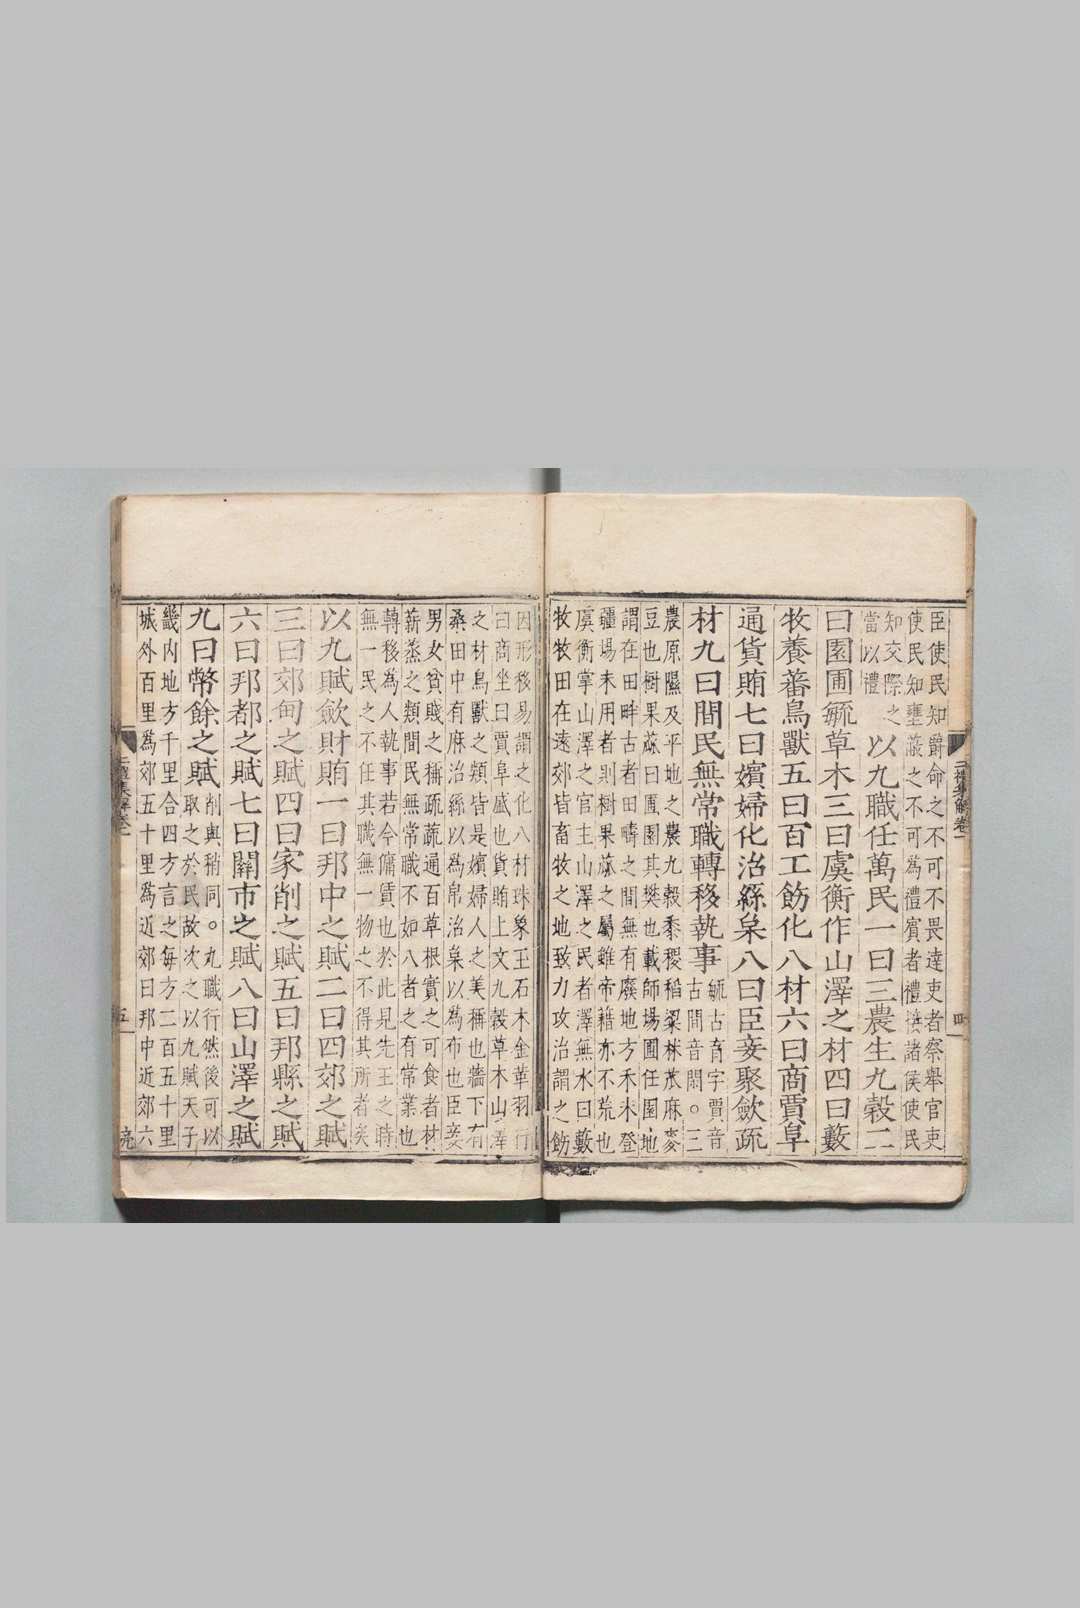 臣使民知爵命之不可不畏達吏者察舉官吏
使民知壅蔽之不可為禮賓者禮接諸侯使民
知交際之
當以禮
以九職任萬民一曰三農生九穀二
曰園圃毓草木三曰虞衡作山澤之材四曰藪
牧養蕃鳥獸五曰百工飭化八材六曰商賈阜
通貨賄七曰嬪婦化治絲枲八曰臣妾聚歛疏
材九曰閒民無常職轉移執事
毓古育字賈音
古間音閑。三
農原隰及平地之農九穀黍稷稻粱秫苽麻麥
豆也樹果蓏曰圃園其樊也載師場圃任園地
謂在田畔古者田疇之間無有廢地方禾未登
疆場未用者則樹果蓏之屬雖帝籍亦不荒也
虞衡掌山澤之官主山澤之民者澤無水曰藪
牧牧田在遠郊皆畜牧之地致力攻治謂之飭
因形移易謂之化八材珠象玉石木金革羽行
曰商坐曰賈阜盛也貨賄上文九穀草木山澤
之材鳥獸之類皆是嬪婦人之美稱也牆下有
桑田中有麻治絲以為帛治枲以為布也臣妾
男女貧賤之稱疏蔬通百草根實之可食者材
薪蒸之類間民無常職不如八者之有常業也
轉移為人執事若今傭賃也於此見先王之時
無一民之不任其職無一物之不得其所者矣
以九賦歛財賄一曰邦中之賦二曰四郊之賦
三曰郊甸之賦四曰家削之賦五曰邦縣之賦
六曰邦都之賦七曰關市之賦八曰山澤之賦
九曰幣餘之賦
削與稍同。九職行然後可以
取之於民故次之以九賦天子
畿內地方千里合四方言之每方二百五十里
城外百里為郊五十里為近郊曰邦中近郊六
五